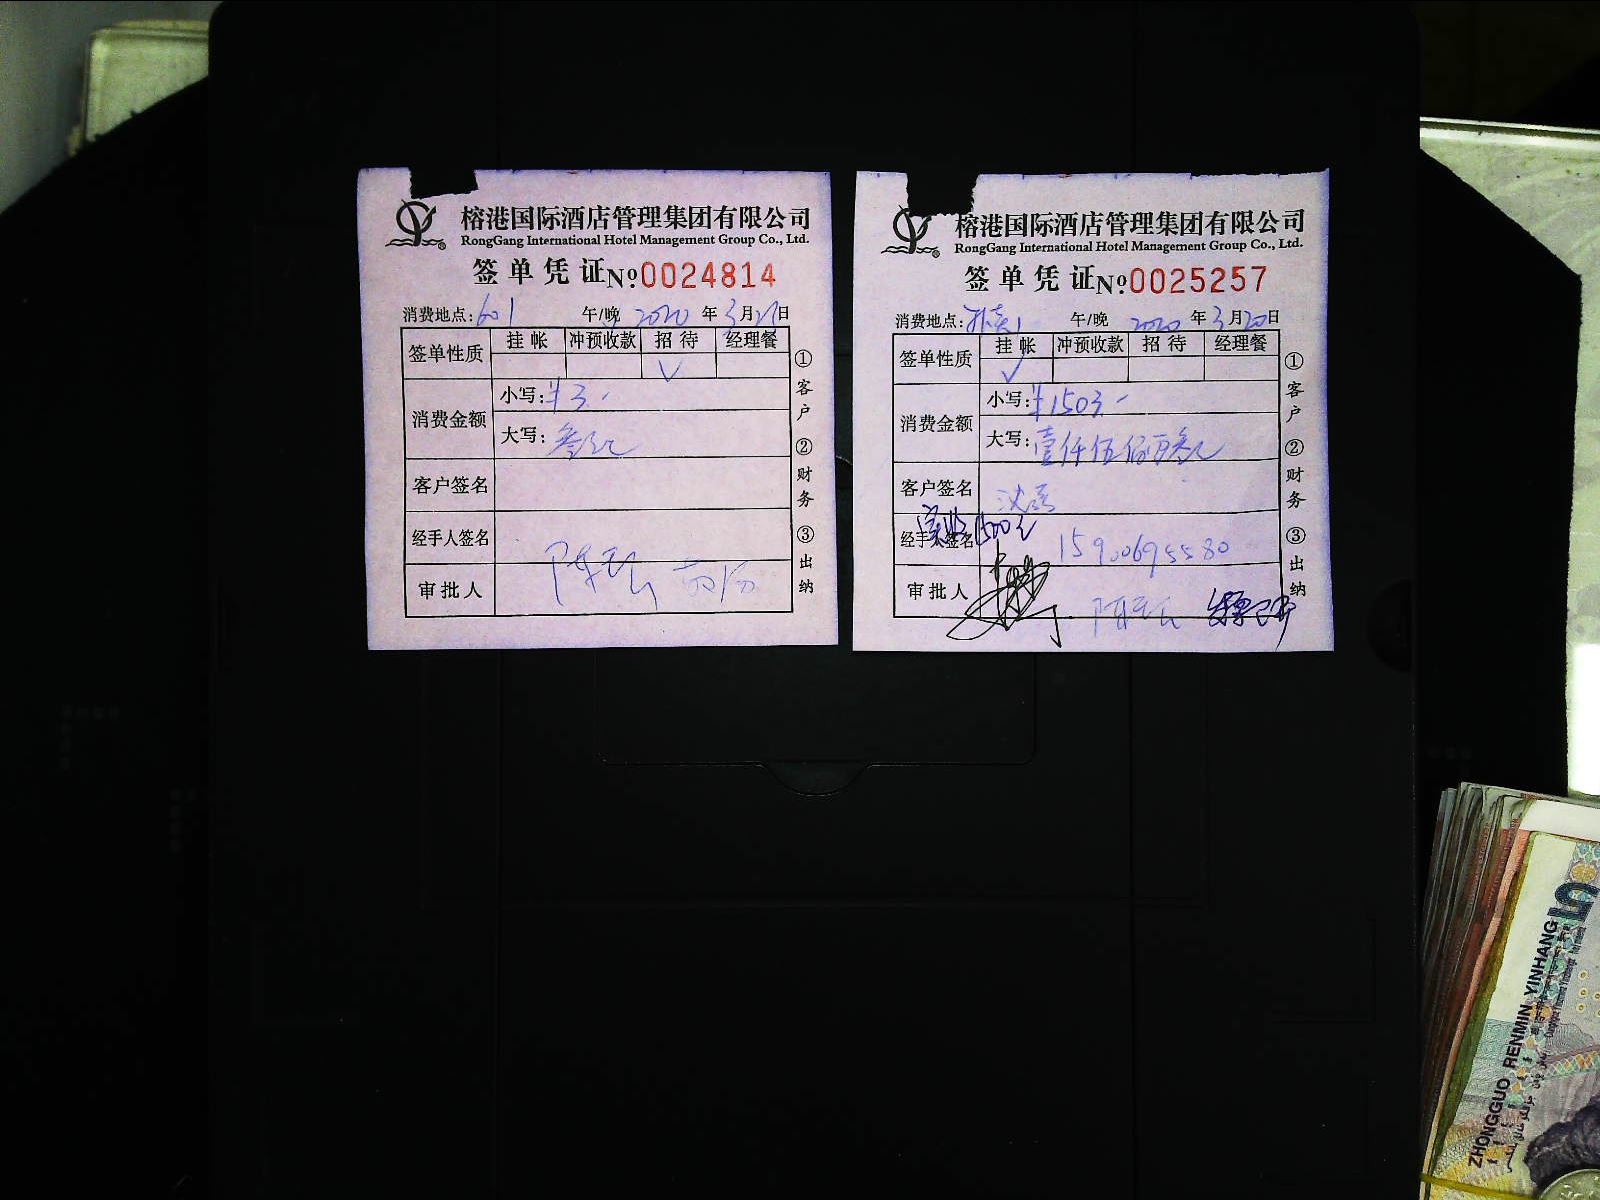 榕港国际酒店管理集团有限公司
RongGang International Hotel Management Group Co., Ltd.
签单凭证 No. 0024814
消费地点: 601 午/晚 2020 年 3 月 日
签单性质 挂帐 冲预收款 招待 经理餐
✓
消费金额 小写: ¥3.-
大写: 叁元
客户签名
经手人签名
审批人
① 客户 ② 财务 ③ 出纳
榕港国际酒店管理集团有限公司
RongGang International Hotel Management Group Co., Ltd.
签单凭证 No. 0025257
消费地点: 午/晚 2020 年 3 月 20 日
签单性质 挂帐 冲预收款 招待 经理餐
✓
消费金额 小写: ¥1503.-
大写: 壹仟伍佰零叁元
客户签名
实收1500元
经手人签名 15900695580
审批人
① 客户 ② 财务 ③ 出纳
ZHONGGUO RENMIN YINHANG
5